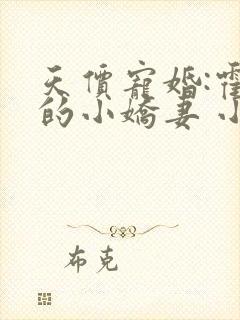 天價寵婚:霍
的小嬌妻 小
布克